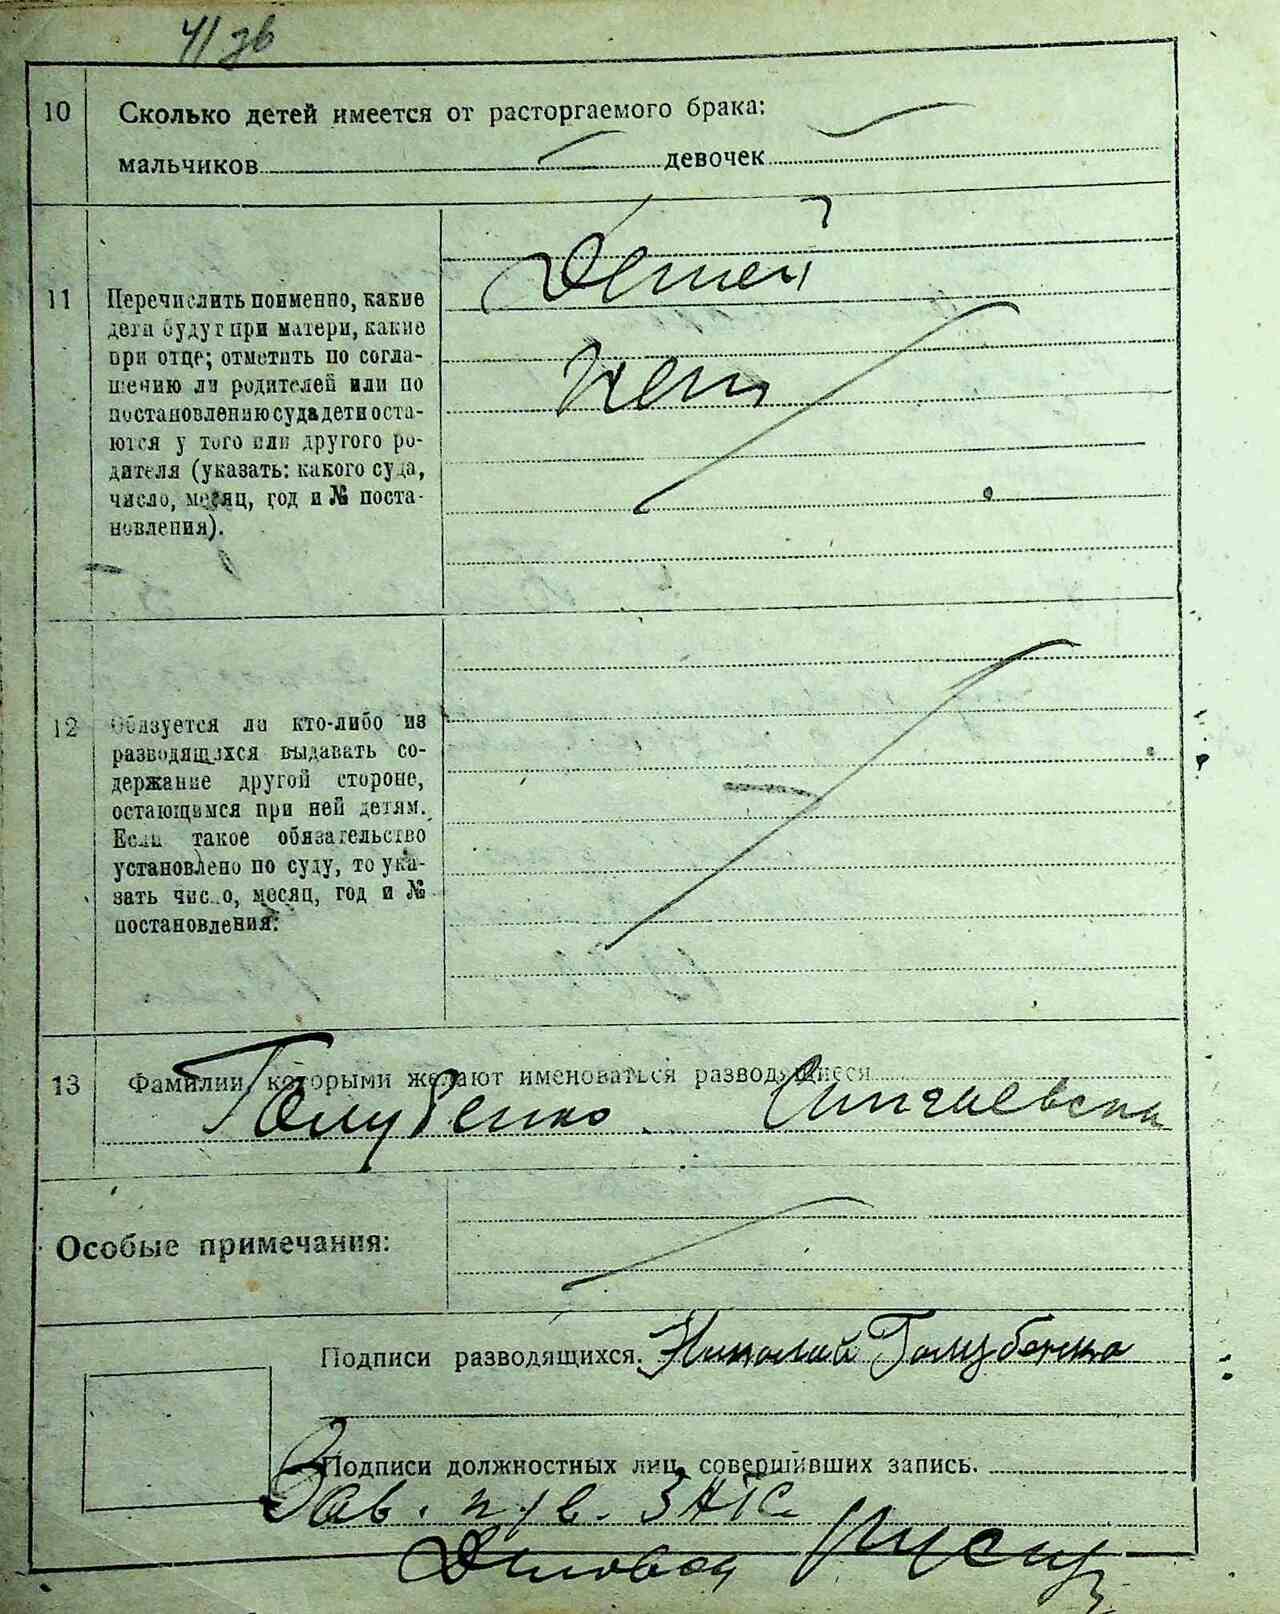 41 зв
10 Сколько детей имеется от расторгаемого брака:
мальчиков девочек
Детей
нет
11 Перечислить поименно, какие
дети будут при матери, какие
при отце; отметить по согла-
шению ли родителей или по
постановлению суда дети оста-
ются у того или другого ро-
дителя (указать: какого суда,
число, месяц, год и № поста-
новления).
12 Обязуется ли кто-либо из
разводящихся выдавать со-
держание другой стороне,
остающимся при ней детям.
Если такое обязательство
установлено по суду, то ука-
зать число, месяц, год и №
постановления:
13 Фамилии, которыми желают именоваться разводящиеся
Голубенко
Особые примечания:
Подписи разводящихся. Николай Голубенко
Подписи должностных лиц, совершивших запись.
Зав. п/в. ЗАГС